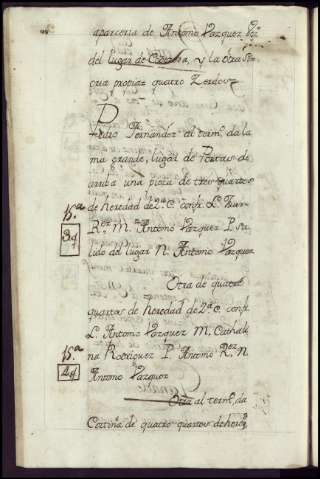 aparceria de Antonio Vazquez Vz.º
del lugar de , y la otra
propia= quatro Zerdos=
Pedro Fernandez al term.º da la
ma grande, lugar de Portas de
arriba una pieza de tres quartos
de heredad de 2.ª C. conf. L.
Rez M. Antonio Vazquez P.
del lugar N. Antonio Vazquez
Otra de quatro
quartos de heredad de 2.ª C. conf.
L. Antonio Vazquez M. Cathali
na Rodriguez P. Antonio Rez N.
Antonio Vazquez
Otra al term.º da
Cortiña de quatro quartos de hered.
p.ª
3q
p.ª
4q